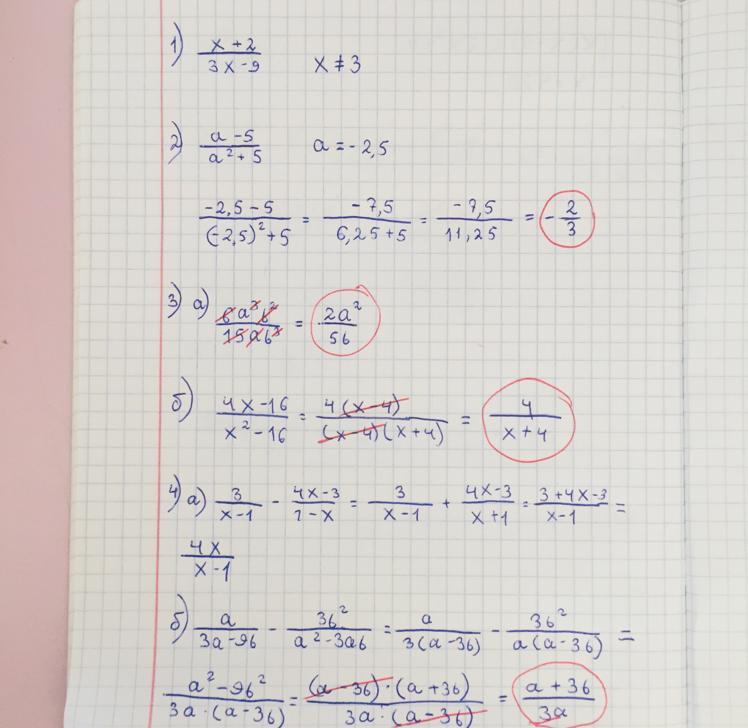 1) (x+2)/(3x-9) x ≠ 3
2) (a-5)/(a²+5) a = -2,5
(-2,5-5)/((-2,5)²+5) = (-7,5)/(6,25+5) = (-7,5)/(11,25) = -2/3
3) а) (6a³b²)/(15ab³) = (2a²)/(5b)
б) (4x-16)/(x²-16) = (4(x-4))/((x-4)(x+4)) = 4/(x+4)
4) а) 3/(x-1) - (4x-3)/(1-x) = 3/(x-1) + (4x-3)/(x+1) = (3+4x-3)/(x-1) =
(4x)/(x-1)
б) a/(3a-9b) - (3b²)/(a²-3ab) = a/(3(a-3b)) - (3b²)/(a(a-3b)) =
(a²-9b²)/(3a·(a-3b)) = ((a-3b)·(a+3b))/(3a·(a-3b)) = (a+3b)/(3a)